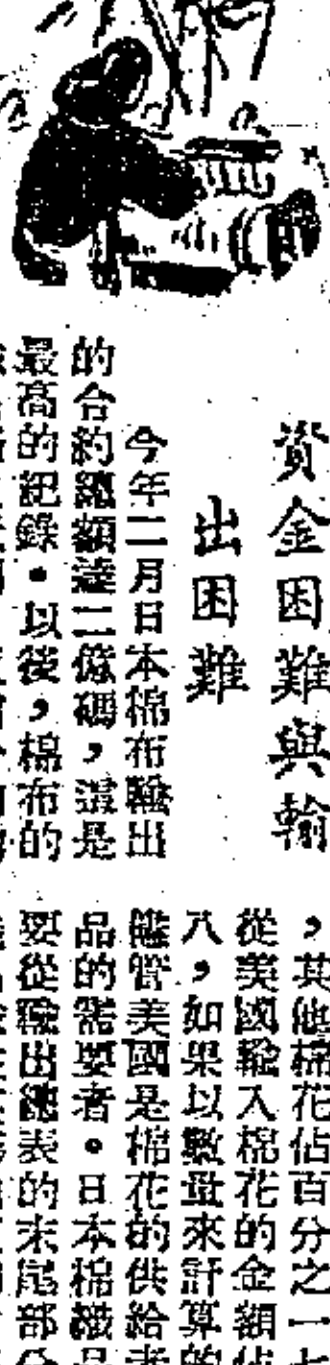 資金困難與輸
出困難
今年二月日本棉布輸出
的合約總額達二億碼，這是
最高的紀錄。以後，棉布的
，其他棉花佔百分之一七
從美國輸入棉花的金額佔
八，如果以數量來計算的
儘管美國是棉花的供給者
品的需要者。日本棉織品
要從輸出總表的末尾部份